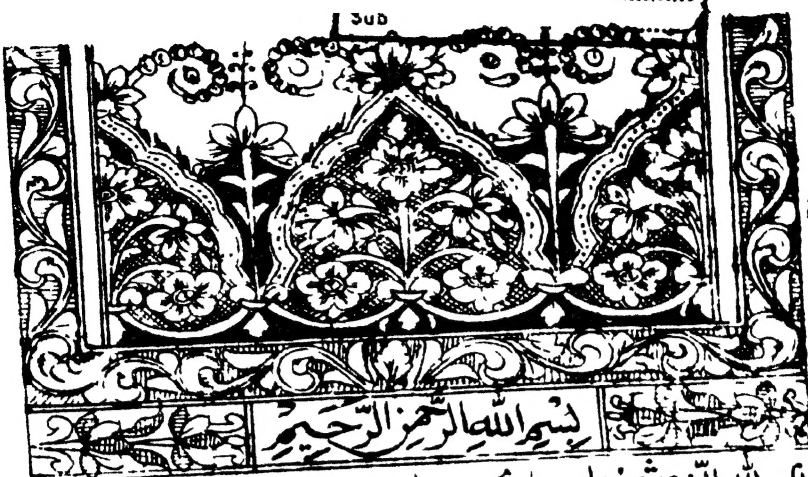 Sub
بِسْمِ اللهِ الرَّحْمٰنِ الرَّحِيْمِ